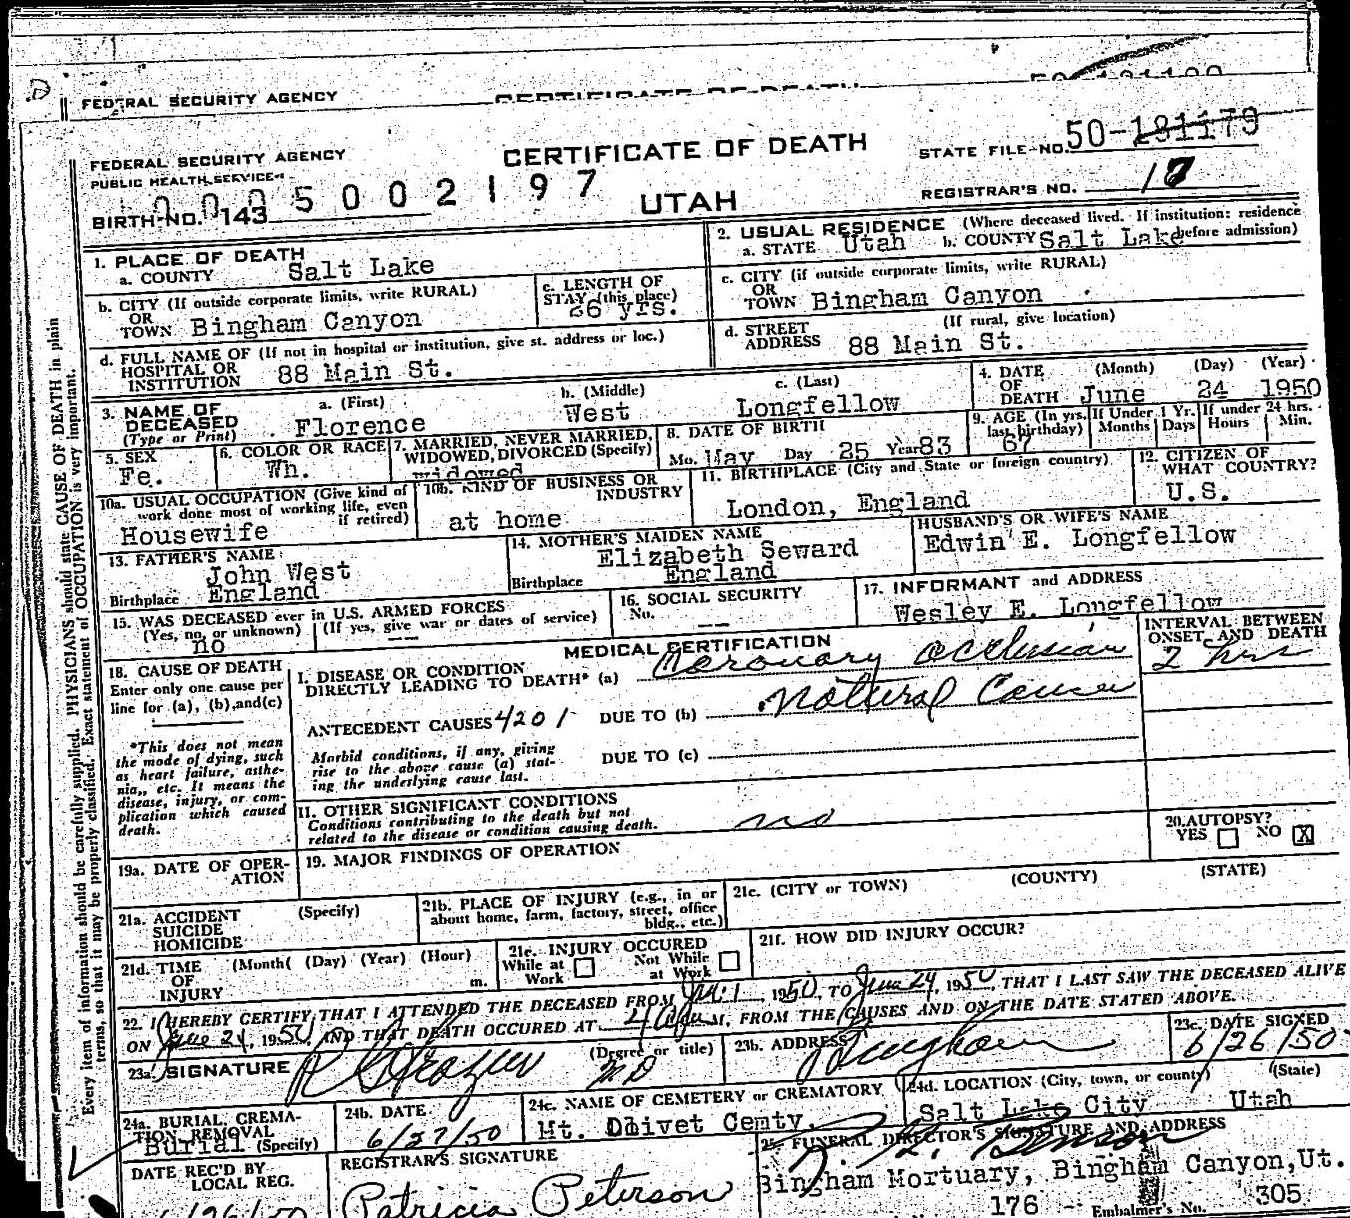 FEDERAL SECURITY AGENCY
CERTIFICATE OF DEATH
FEDERAL SECURITY AGENCY
PUBLIC HEALTH SERVICE
CERTIFICATE OF DEATH
UTAH
STATE FILE NO. 50-181179
REGISTRAR'S NO.
BIRTH NO. 143
0005002197
1. PLACE OF DEATH
a. COUNTY Salt Lake
2. USUAL RESIDENCE (Where deceased lived. If institution: residence before admission)
a. STATE Utah b. COUNTY Salt Lake
b. CITY (If outside corporate limits, write RURAL)
OR
TOWN Bingham Canyon
c. LENGTH OF
STAY (this place)
26 yrs.
c. CITY (if outside corporate limits, write RURAL)
OR
TOWN Bingham Canyon
d. FULL NAME OF (If not in hospital or institution, give st. address or loc.)
HOSPITAL OR
INSTITUTION 88 Main St.
d. STREET (If rural, give location)
ADDRESS 88 Main St.
3. NAME OF
DECEASED
(Type or Print)
a. (First) b. (Middle) c. (Last)
Florence West Longfellow
4. DATE (Month) (Day) (Year)
OF
DEATH June 24 1950
5. SEX
Fe.
6. COLOR OR RACE
Wh.
7. MARRIED, NEVER MARRIED,
WIDOWED, DIVORCED (Specify)
widowed
8. DATE OF BIRTH
Mo. May Day 25 Year 83
9. AGE (In yrs.
last birthday)
67
If Under 1 Yr.
Months Days
If under 24 hrs.
Hours Min.
10a. USUAL OCCUPATION (Give kind of
work done most of working life, even
if retired)
Housewife
10b. KIND OF BUSINESS OR
INDUSTRY
at home
11. BIRTHPLACE (City and State or foreign country)
London, England
12. CITIZEN OF
WHAT COUNTRY?
U.S.
13. FATHER'S NAME
John West
Birthplace England
14. MOTHER'S MAIDEN NAME
Elizabeth Seward
Birthplace England
HUSBAND'S OR WIFE'S NAME
Edwin E. Longfellow
15. WAS DECEASED ever in U.S. ARMED FORCES
(Yes, no, or unknown) (If yes, give war or dates of service)
no --
16. SOCIAL SECURITY
No. --
17. INFORMANT and ADDRESS
Wesley E. Longfellow
MEDICAL CERTIFICATION
INTERVAL BETWEEN
ONSET AND DEATH
18. CAUSE OF DEATH
Enter only one cause per
line for (a), (b), and (c)
*This does not mean
the mode of dying, such
as heart failure, asthe-
nia,, etc. It means the
disease, injury, or com-
plication which caused
death.
I. DISEASE OR CONDITION
DIRECTLY LEADING TO DEATH* (a) Coronary occlusion
2 hrs
ANTECEDENT CAUSES 4201 DUE TO (b) Natural Cause
Morbid conditions, if any, giving
rise to the above cause (a) stat-
ing the underlying cause last.
DUE TO (c)
II. OTHER SIGNIFICANT CONDITIONS
Conditions contributing to the death but not
related to the disease or condition causing death.
no
20. AUTOPSY?
YES NO X
19a. DATE OF OPER-
ATION
19. MAJOR FINDINGS OF OPERATION
21a. ACCIDENT (Specify)
SUICIDE
HOMICIDE
21b. PLACE OF INJURY (e.g., in or
about home, farm, factory, street, office
bldg., etc.)
21c. (CITY or TOWN) (COUNTY) (STATE)
21d. TIME (Month( (Day) (Year) (Hour)
OF
INJURY m.
21e. INJURY OCCURED
While at Work Not While at Work
21f. HOW DID INJURY OCCUR?
22. I HEREBY CERTIFY THAT I ATTENDED THE DECEASED FROM 1, 1950, TO June 24, 1950, THAT I LAST SAW THE DECEASED ALIVE
ON June 24, 1950, AND THAT DEATH OCCURED AT M., FROM THE CAUSES AND ON THE DATE STATED ABOVE.
23a. SIGNATURE (Degree or title)
R G Frazier MD
23b. ADDRESS
Bingham
23c. DATE SIGNED
6/26/50
24a. BURIAL, CREMA-
TION, REMOVAL
Burial (Specify)
24b. DATE
6/27/50
24c. NAME OF CEMETERY or CREMATORY
Mt. Olivet Cemty.
24d. LOCATION (City, town, or county) (State)
Salt Lake City Utah
DATE REC'D BY
LOCAL REG.
REGISTRAR'S SIGNATURE
Patricia Peterson
25. FUNERAL DIRECTOR'S SIGNATURE AND ADDRESS
Bingham Mortuary, Bingham Canyon, Ut.
176 Embalmer's No. 305
Every item of information should be carefully supplied. PHYSICIANS should state CAUSE OF DEATH in plain
terms, so that it may be properly classified. Exact statement of OCCUPATION is very important.